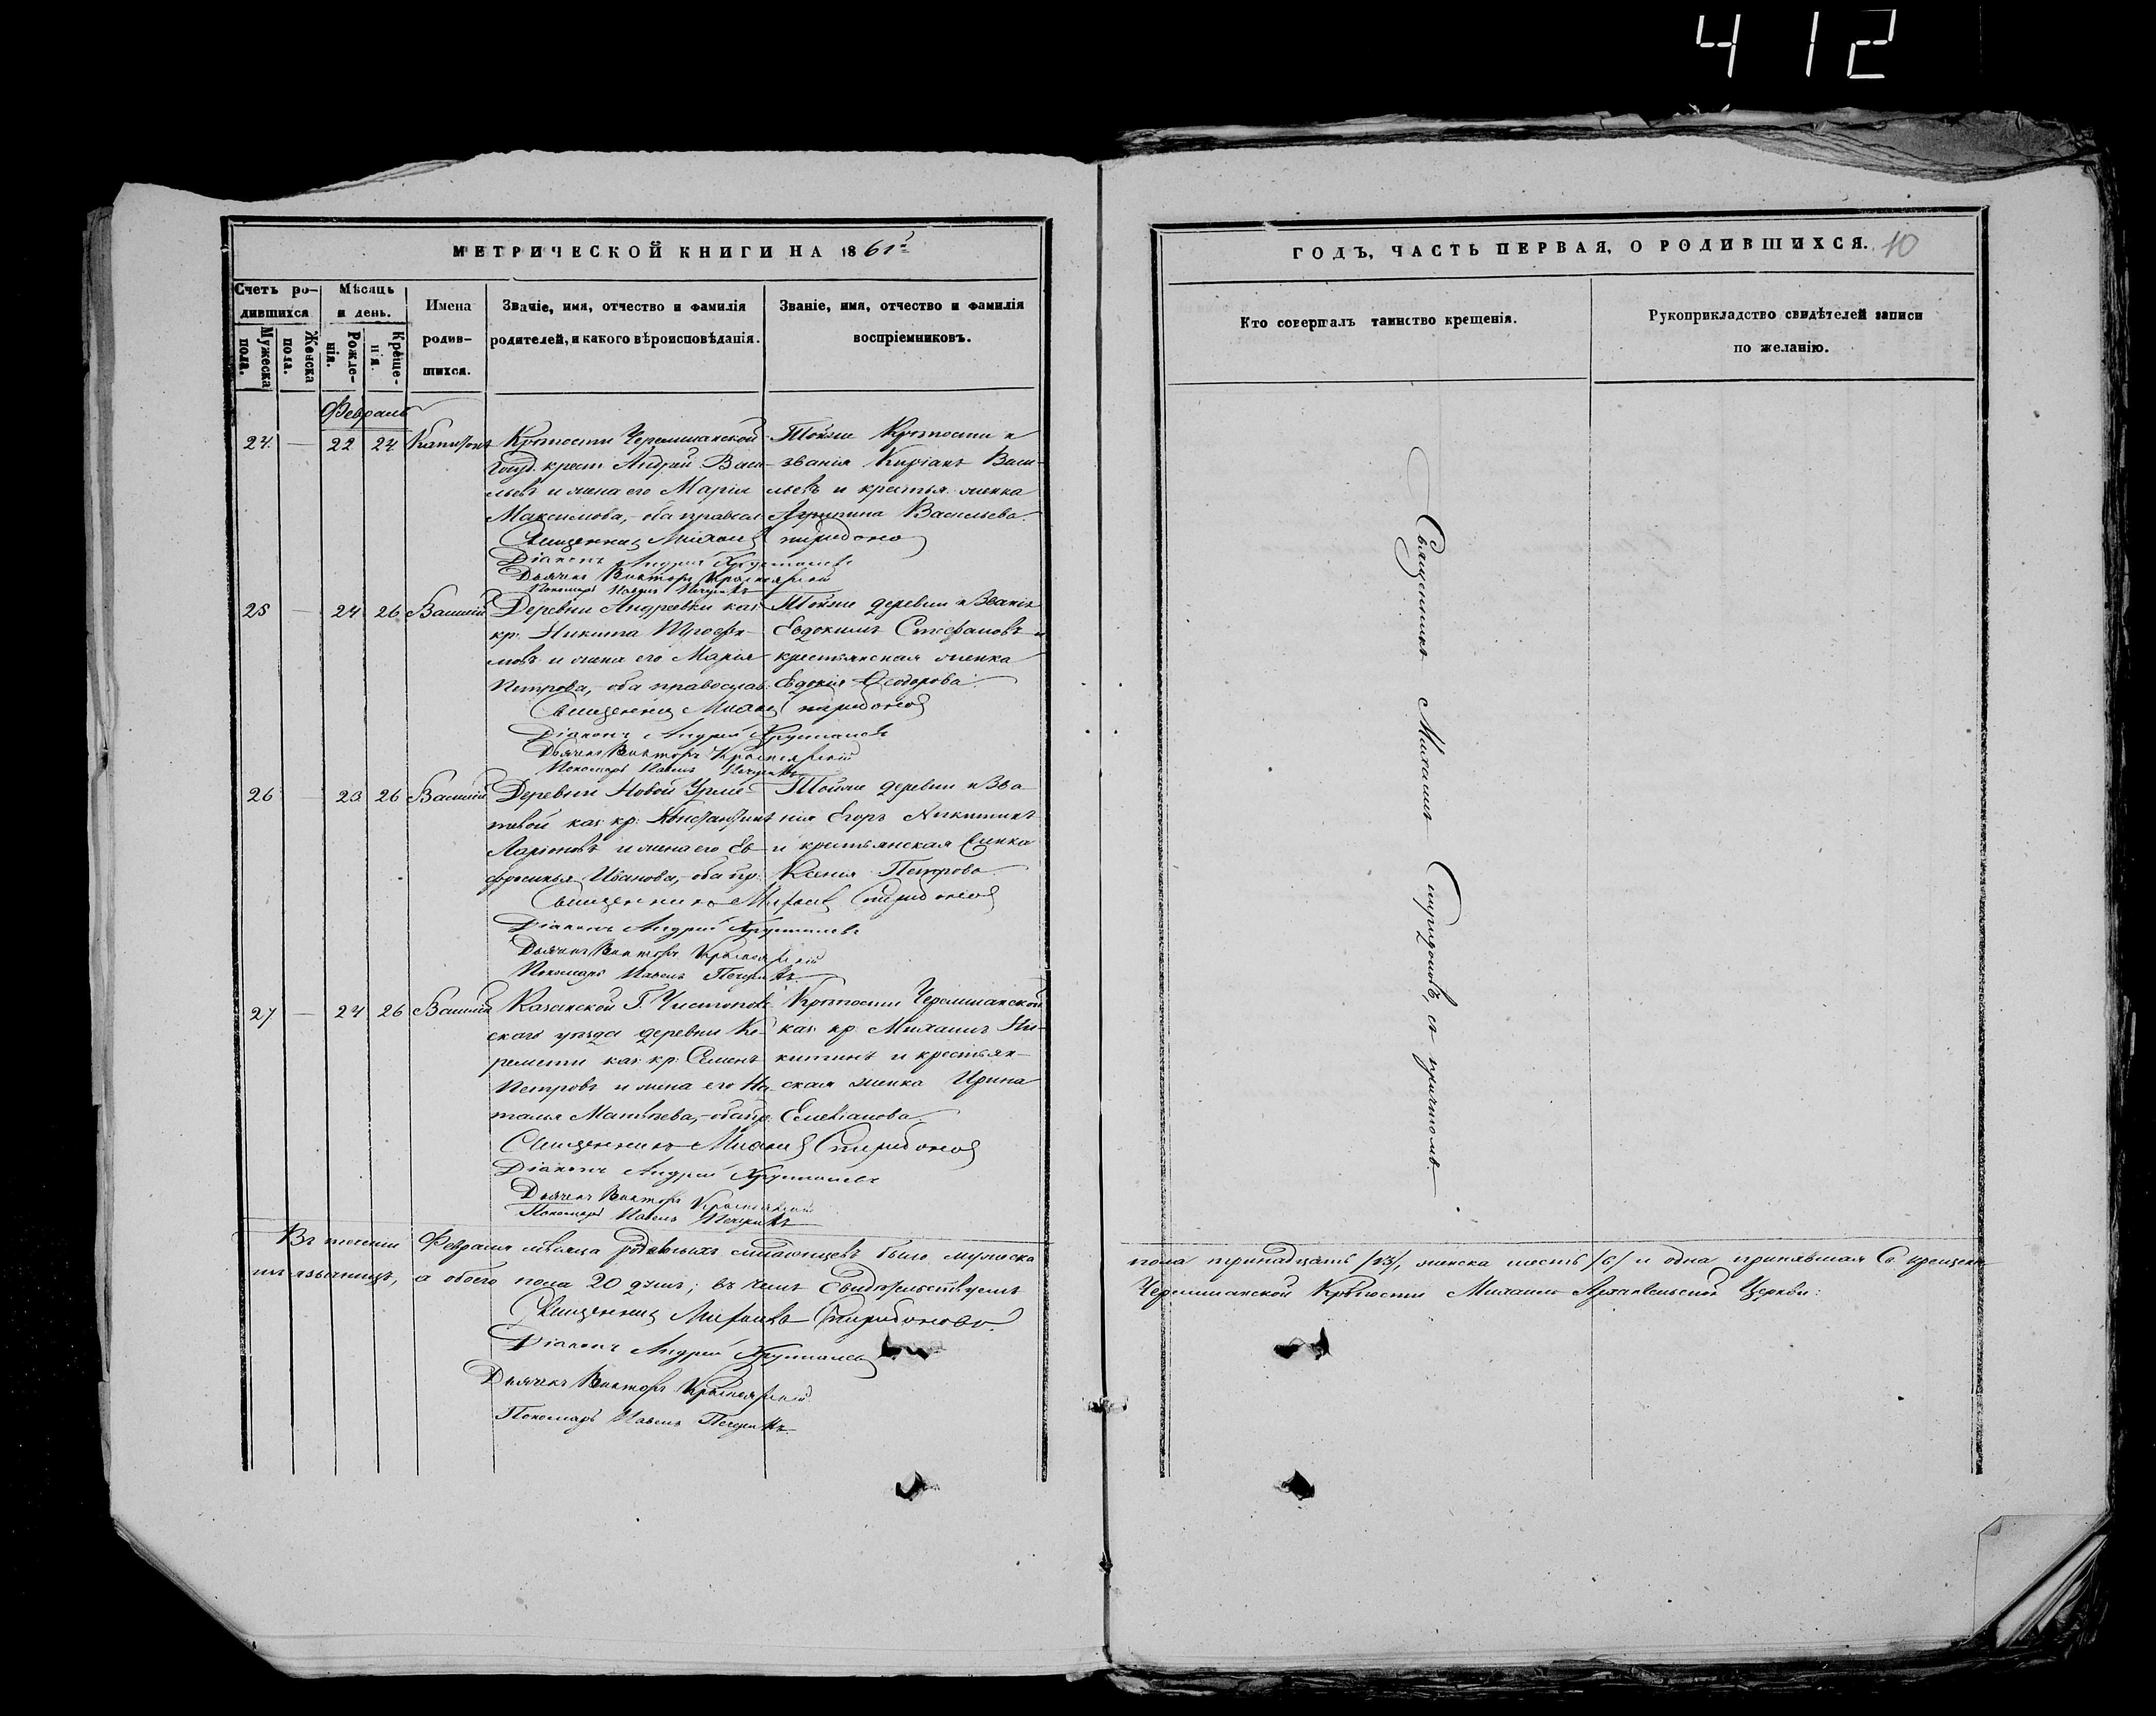 412
МЕТРИЧЕСКОЙ КНИГИ НА 1861й
Счетъ ро-
дившихся
Мужеска пола.
Женска пола.
Мѣсяць
и день.
Рожде-
нія.
Креще-
нія.
Имена
родив-
шихся.
Званіе, имя, отчество и фамилія
родителей, и какого вѣроисповѣданія.
Званіе, имя, отчество и фамилія
воспріемниковъ.
Февраль
24. — 22 24
Крѣпости Черемшанской
Госуд. крест. Андрей Васи-
льевъ и жена его Марія
Максимова, - оба правосл.
Тойже Крѣпости и
званія Киріакъ Васи-
льевъ и крестья. женка
Васильева.
Священникъ Михаилъ Спиридоновъ
Діаконъ Андрей Хрусталевъ
Дьячекъ Викторъ Красноярскій
Пономарь Павелъ
25 — 24 26 Василій
Деревни Андреевки каз.
кр. Никита Трофи-
мовъ и жена его Марія
Петрова, - оба православ.
Тойже деревни и Званія
Евдокимъ Стефановъ и
крестьянская женка
Евдокія Ѳеодорова.
Священникъ Михаилъ Спиридоновъ
Діаконъ Андрей Хрусталевъ
Дьячекъ Викторъ Красноярскій
Пономарь Павелъ
26 — 23 26 Василій
Деревни Новой
каз. кр. Константинъ
Ларіоновъ и жена его Ев-
фросинья Иванова, - оба пр.
Тойже деревни и Зва-
нія Егоръ Никитинъ
и крестьянская женка
Ксенія Петрова.
Священникъ Михаилъ Спиридоновъ
Діаконъ Андрей Хрусталевъ
Дьячекъ Викторъ Красноярскій
Пономарь Павелъ
27 — 24 26 Василій
Казанской Г. Чистополь-
скаго уѣзда деревни Ке-
ремети каз. кр. Семенъ
Петровъ и жена его На-
талья Матвѣева, - оба пр.
Крѣпости Черемшанской
каз. кр. Михаилъ Ни-
китинъ и крестьян-
ская женка Ирина
Священникъ Михаилъ Спиридоновъ
Діаконъ Андрей Хрусталевъ
Дьячекъ Викторъ Красноярскій
Пономарь Павелъ
Въ теченіи Февраля мѣсяца родившихся младенцевъ было мужеска
а обоего пола 20 душъ; въ чемъ Свидѣтельствуемъ
Священникъ Михаилъ Спиридоновъ.
Діаконъ Андрей Хрусталевъ
Дьячекъ Викторъ Красноярскій
Пономарь Павелъ
ГОДЪ, ЧАСТЬ ПЕРВАЯ, О РОДИВШИХСЯ. 10
Кто совершалъ таинство крещенія.
Рукоприкладство свидѣтелей записи
по желанію.
Священникъ Михаилъ Спиридоновъ, съ причтомъ.
пола тринадцать /13/, женска шесть /6/ и одна принявшая Св. крещеніе
Черемшанской Крѣпости Михаило Архангельской Церкви: